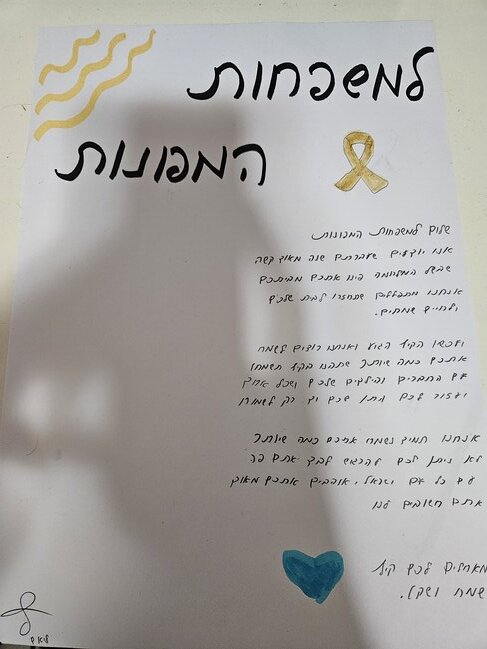 למשפחות
המפונות
שלום למשפחות המפונות
אנו יודעים שעברתם שנה מאוד קשה
שבשל המלחמה פינו אתכם מביתכם
אנחנו מתפללים שתחזרו לבית שלכם
ולחיים שמחים.
ועכשו הקיץ הגיע ואנחנו רוצים לשמח
אתכם כמה שיותר שתהנו בקיץ תשמחו
עם החברים והילדים שלכם ושכל אחד
יעזור לכם ויתן שכם יד רק לשמוח
אנחנו תמיד נשמח אתכם כמה שיותר
לא ניתן לכם להרגיש לבד אתם פה
עם כל עם ישראל, אוהבים אתכם מאוד
אתם חשובים לנו
מאחלים לכם קיץ
שמח ושקט.